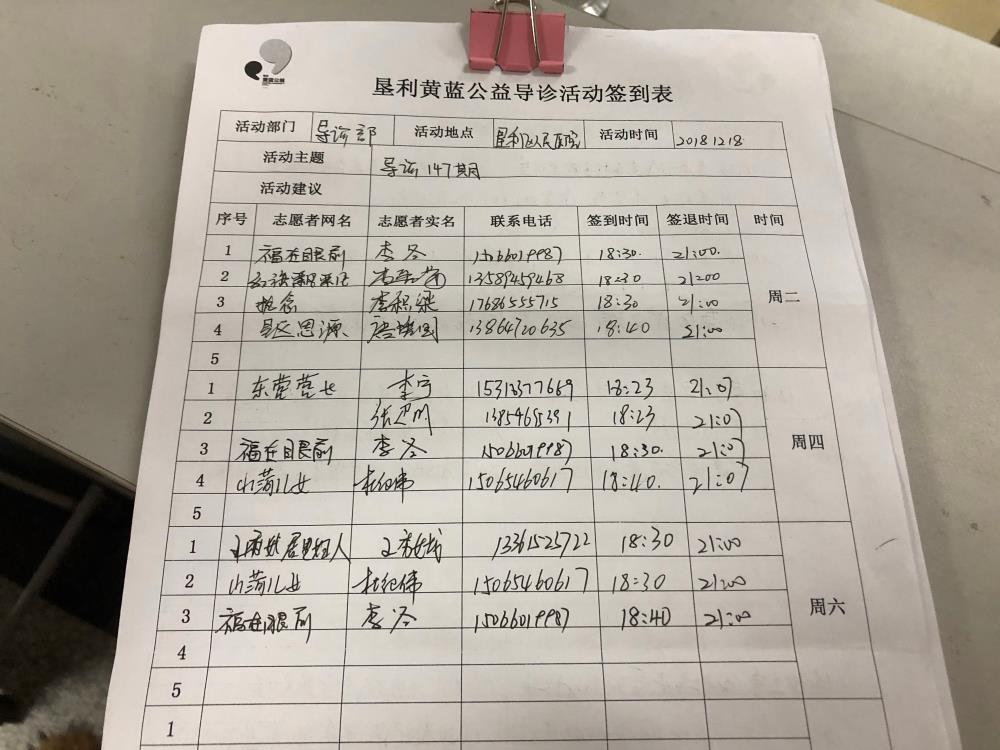 垦利黄蓝公益导诊活动签到表
活动部门 导诊部 活动地点 垦利区人民医院 活动时间 20181218
活动主题 导诊147期
活动建议
序号 志愿者网名 志愿者实名 联系电话 签到时间 签退时间 时间
1 福在眼前 李冬 15066019987 18:30. 21:00.
2 13589459468 18:30 21:00
3 执念 李积梁 17686555715 18:30 21:00
4 思源 13864720635 18:40 21:00
周二
5
1 东营营长 李宁 15313377669 18:23 21:07
2 张卫刚 1385465391 18:23 21:07
3 福在眼前 李冬 15066019987 18:30. 21:07
周四
4 山菏儿女 杜纪伟 15065460617 18:40. 21:07
5
1 13361525722 18:30 21:00
2 山菏儿女 杜纪伟 15065460617 18:30 21:00
3 福在眼前 李冬 15066019987 18:40 21:00
周六
4
5
1